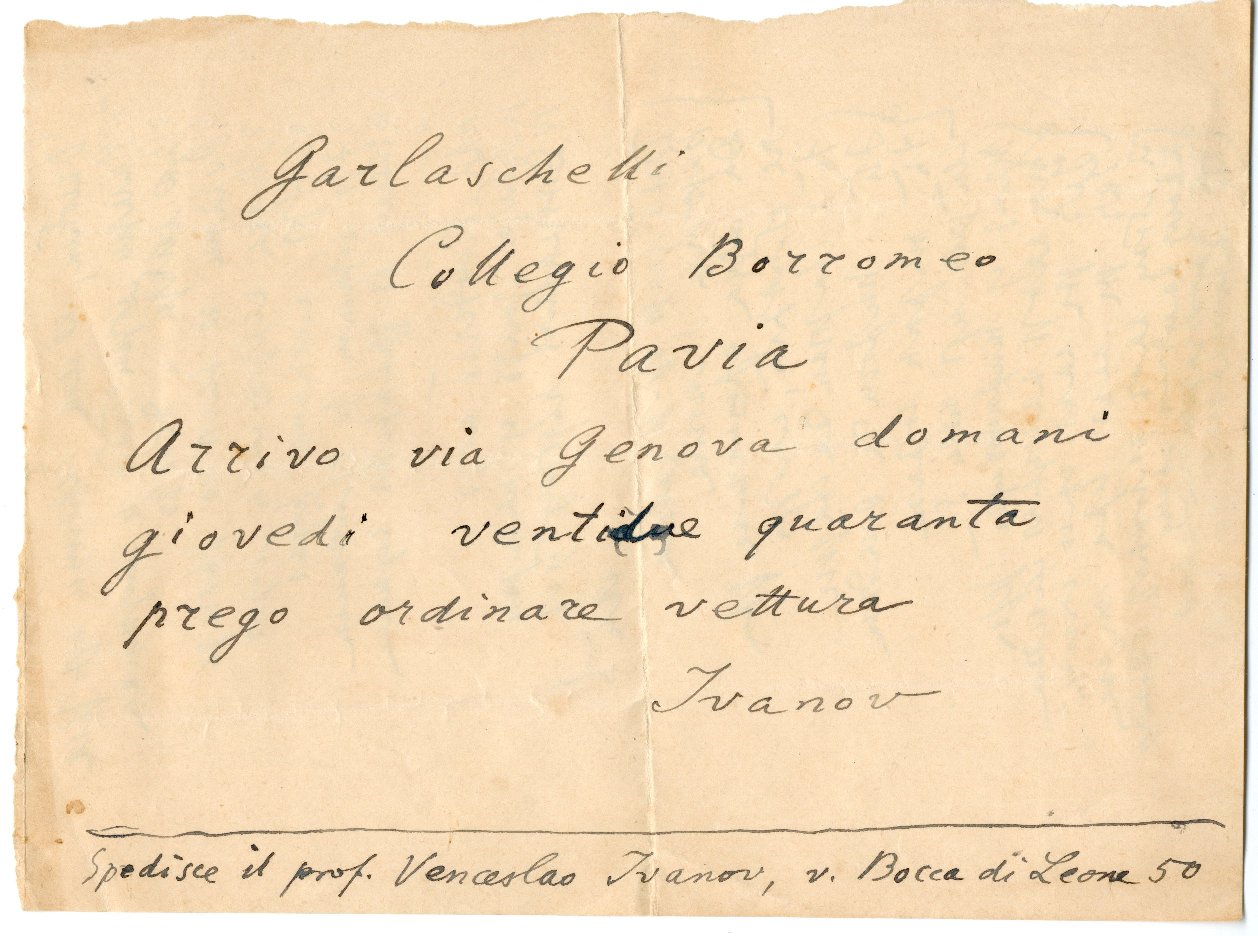 Garlaschelli
Collegio Borromeo
Pavia
Arrivo via Genova domani
giovedi ventidue quaranta
prego ordinare vettura
Ivanov
Spedisce il prof. Venceslao Ivanov, v. Bocca di Leone 50